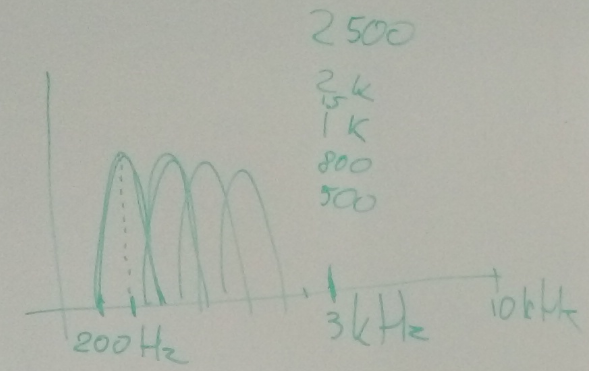 2500
2k
15
1k
800
500
200Hz
3kHz
10kHz